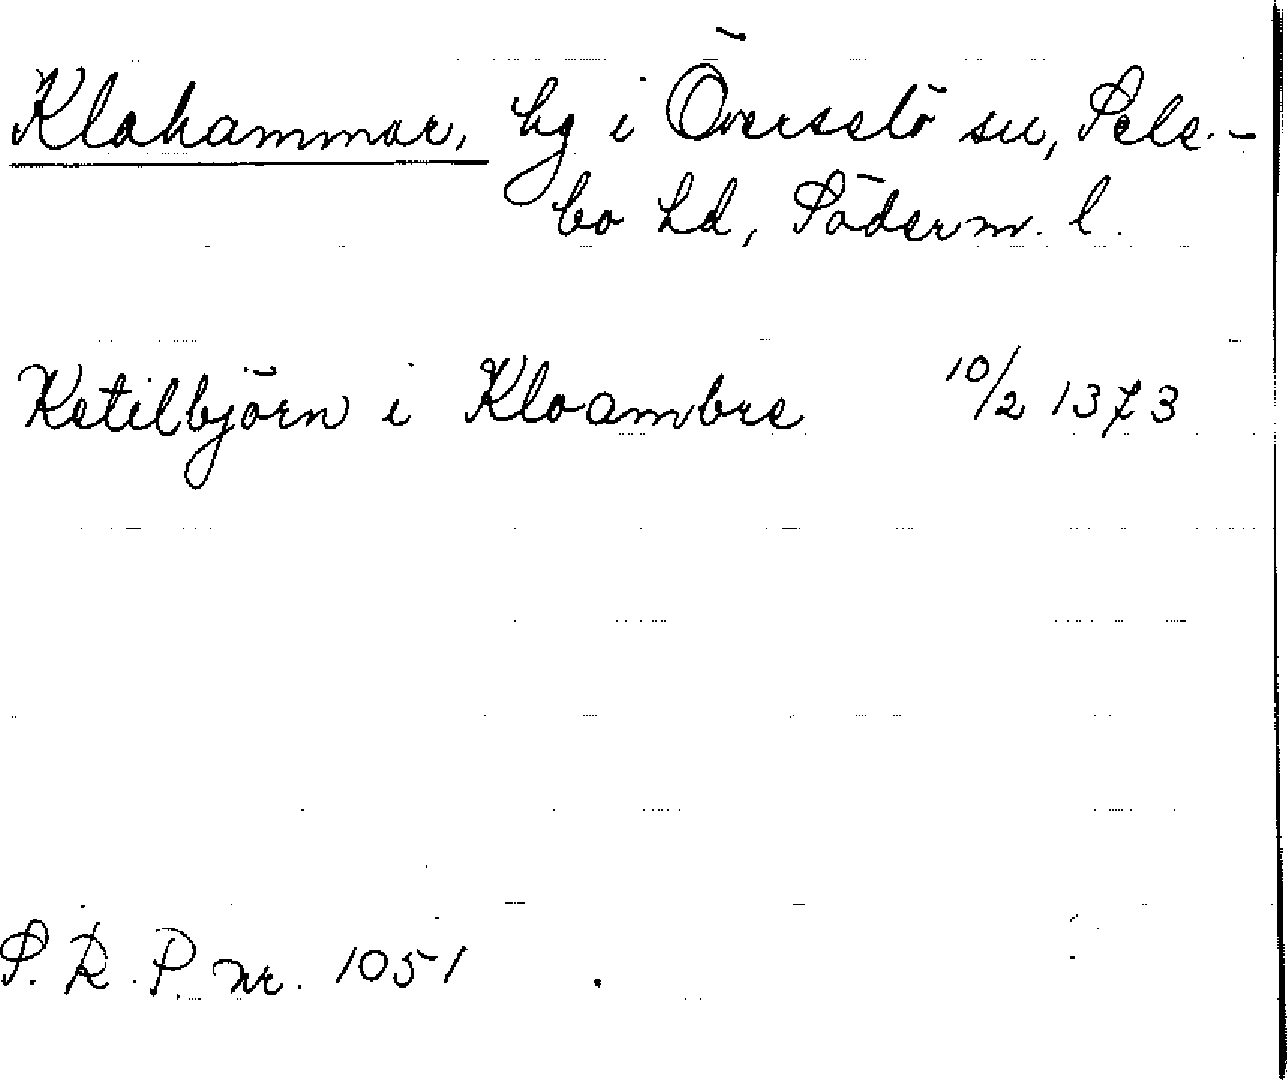 Klahammar, hg i Överselö sn, Sele-
bo hd, Söderm. l.
Ketilbjörn i Kloambre 10/2 1373
S. R. P. nr. 1051